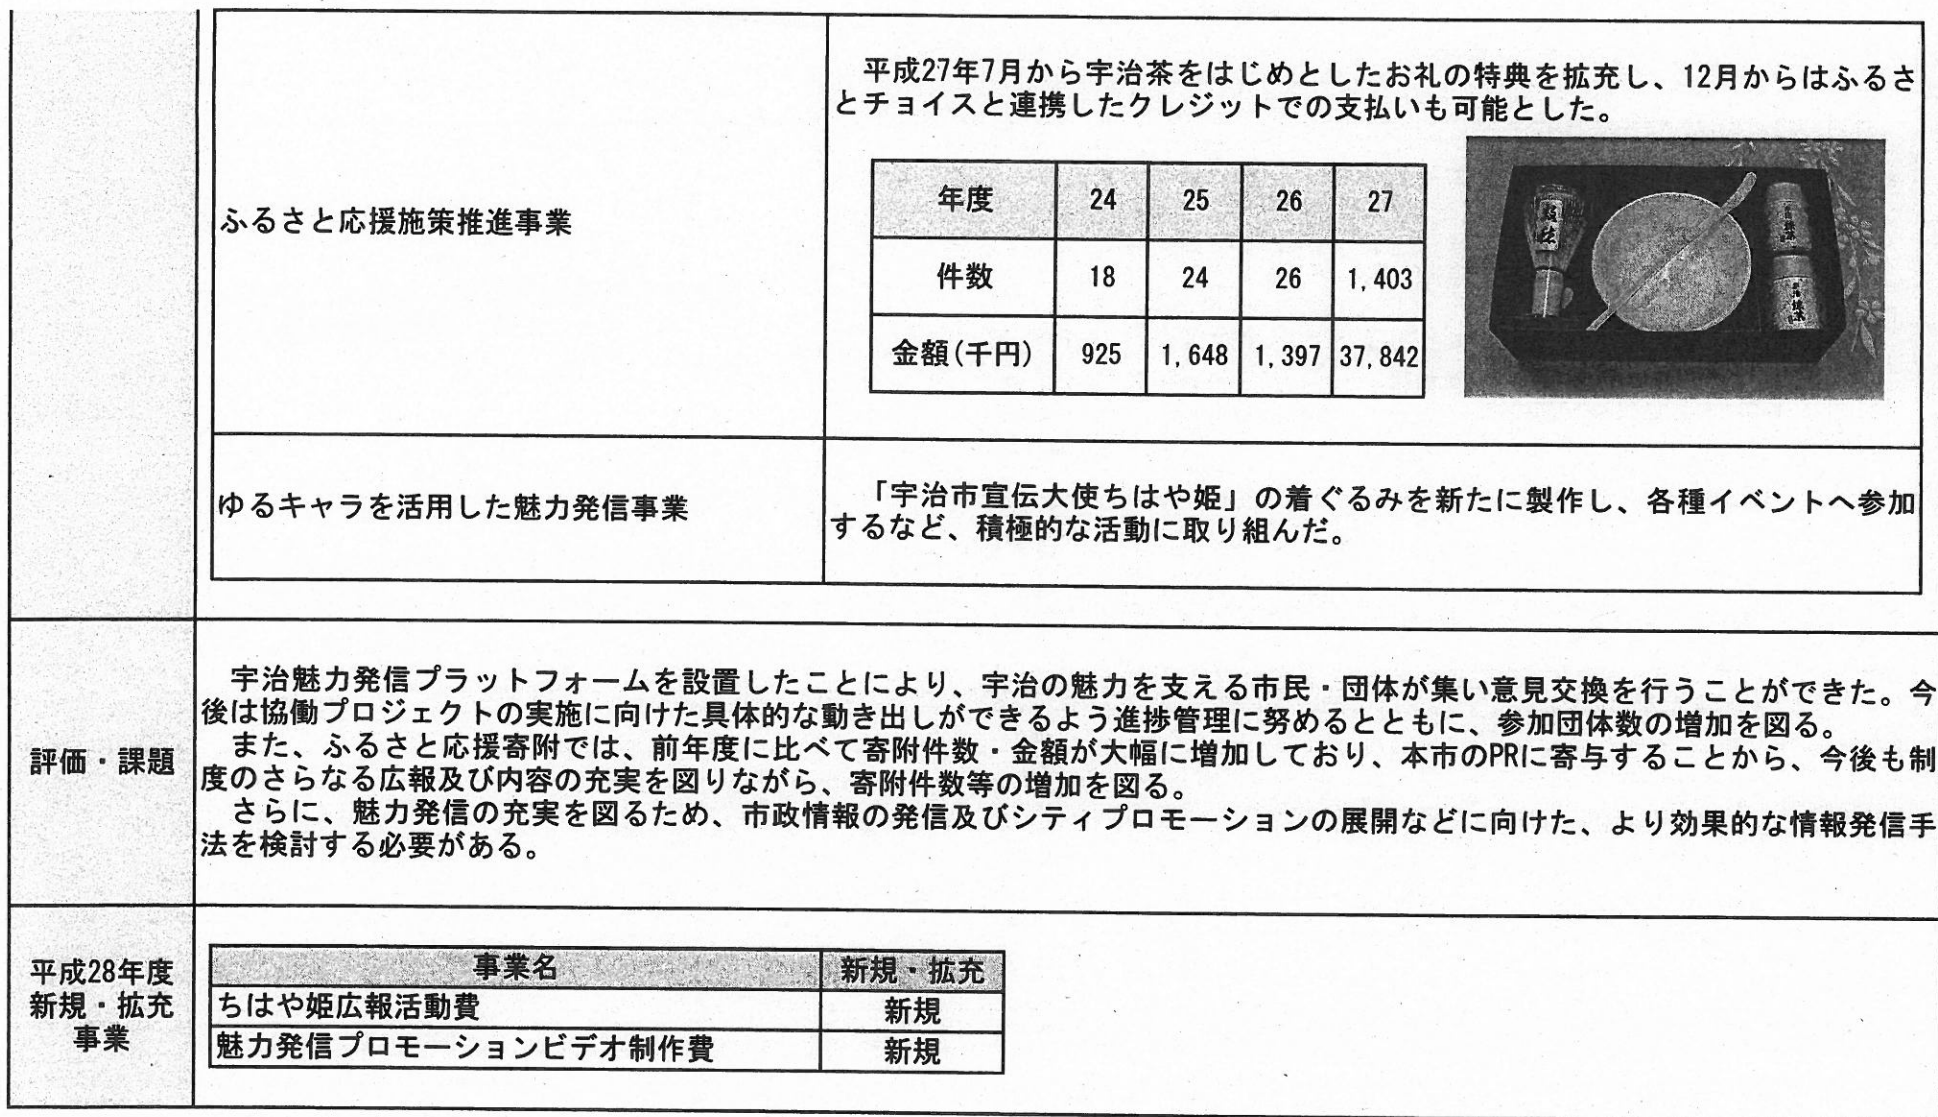 ふるさと応援施策推進事業
平成27年7月から宇治茶をはじめとしたお礼の特典を拡充し、12月からはふるさ
とチョイスと連携したクレジットでの支払いも可能とした。
年度 24 25 26 27
件数 18 24 26 1,403
金額(千円) 925 1,648 1,397 37,842
ゆるキャラを活用した魅力発信事業
「宇治市宣伝大使ちはや姫」の着ぐるみを新たに製作し、各種イベントへ参加
するなど、積極的な活動に取り組んだ。
評価・課題
宇治魅力発信プラットフォームを設置したことにより、宇治の魅力を支える市民・団体が集い意見交換を行うことができた。今
後は協働プロジェクトの実施に向けた具体的な動き出しができるよう進捗管理に努めるとともに、参加団体数の増加を図る。
また、ふるさと応援寄附では、前年度に比べて寄附件数・金額が大幅に増加しており、本市のPRに寄与することから、今後も制
度のさらなる広報及び内容の充実を図りながら、寄附件数等の増加を図る。
さらに、魅力発信の充実を図るため、市政情報の発信及びシティプロモーションの展開などに向けた、より効果的な情報発信手
法を検討する必要がある。
平成28年度
新規・拡充
事業
事業名 新規・拡充
ちはや姫広報活動費 新規
魅力発信プロモーションビデオ制作費 新規